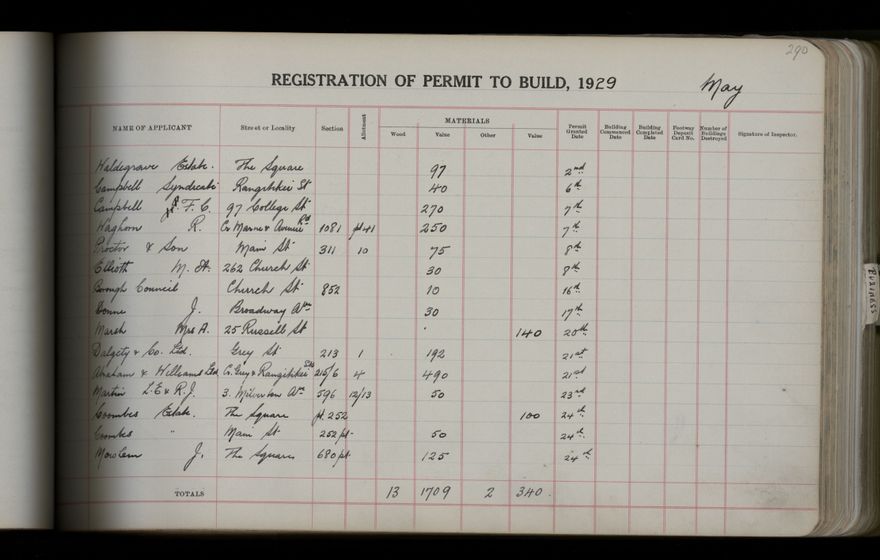 290
REGISTRATION OF PERMIT TO BUILD, 1929 May
NAME OF APPLICANT Street or Locality Section Allotment MATERIALS Wood Value Other Value Permit Granted Date Building Commenced Date Building Completed Date Footway Deposit Card No. Number of Buildings Destroyed Signature of Inspector.
Waldegrave Estate. The Square 97 2nd
Campbell Syndicate Rangitikei St 40 6th
Campbell F. C. 97 College St 270 7th
Waghorn R. Cr Marne & Avenue Rd 1081 pt 41 250 7th
Proctor & Son Main St 311 10 75 8th
Elliott M. St. 262 Church St 30 8th
Borough Council Church St 852 10 16th
J. Broadway Ave 30 17th
Marsh Mrs A. 25 Russell St 140 20th
Dalgety & Co. Ltd. Grey St 213 1 192 21st
Abraham & Williams Ltd Cr. Grey & Rangitikei Sts 215/6 4 490 21st
Martin L. E & R. J. 3. Ave 596 12/13 50 23rd
Coombes Estate. The Square pt. 252 100 24th
Coombes " Main St 252 pt- 50 24th
J. The Square 680 pt 125 24th
TOTALS 13 1709 2 340.